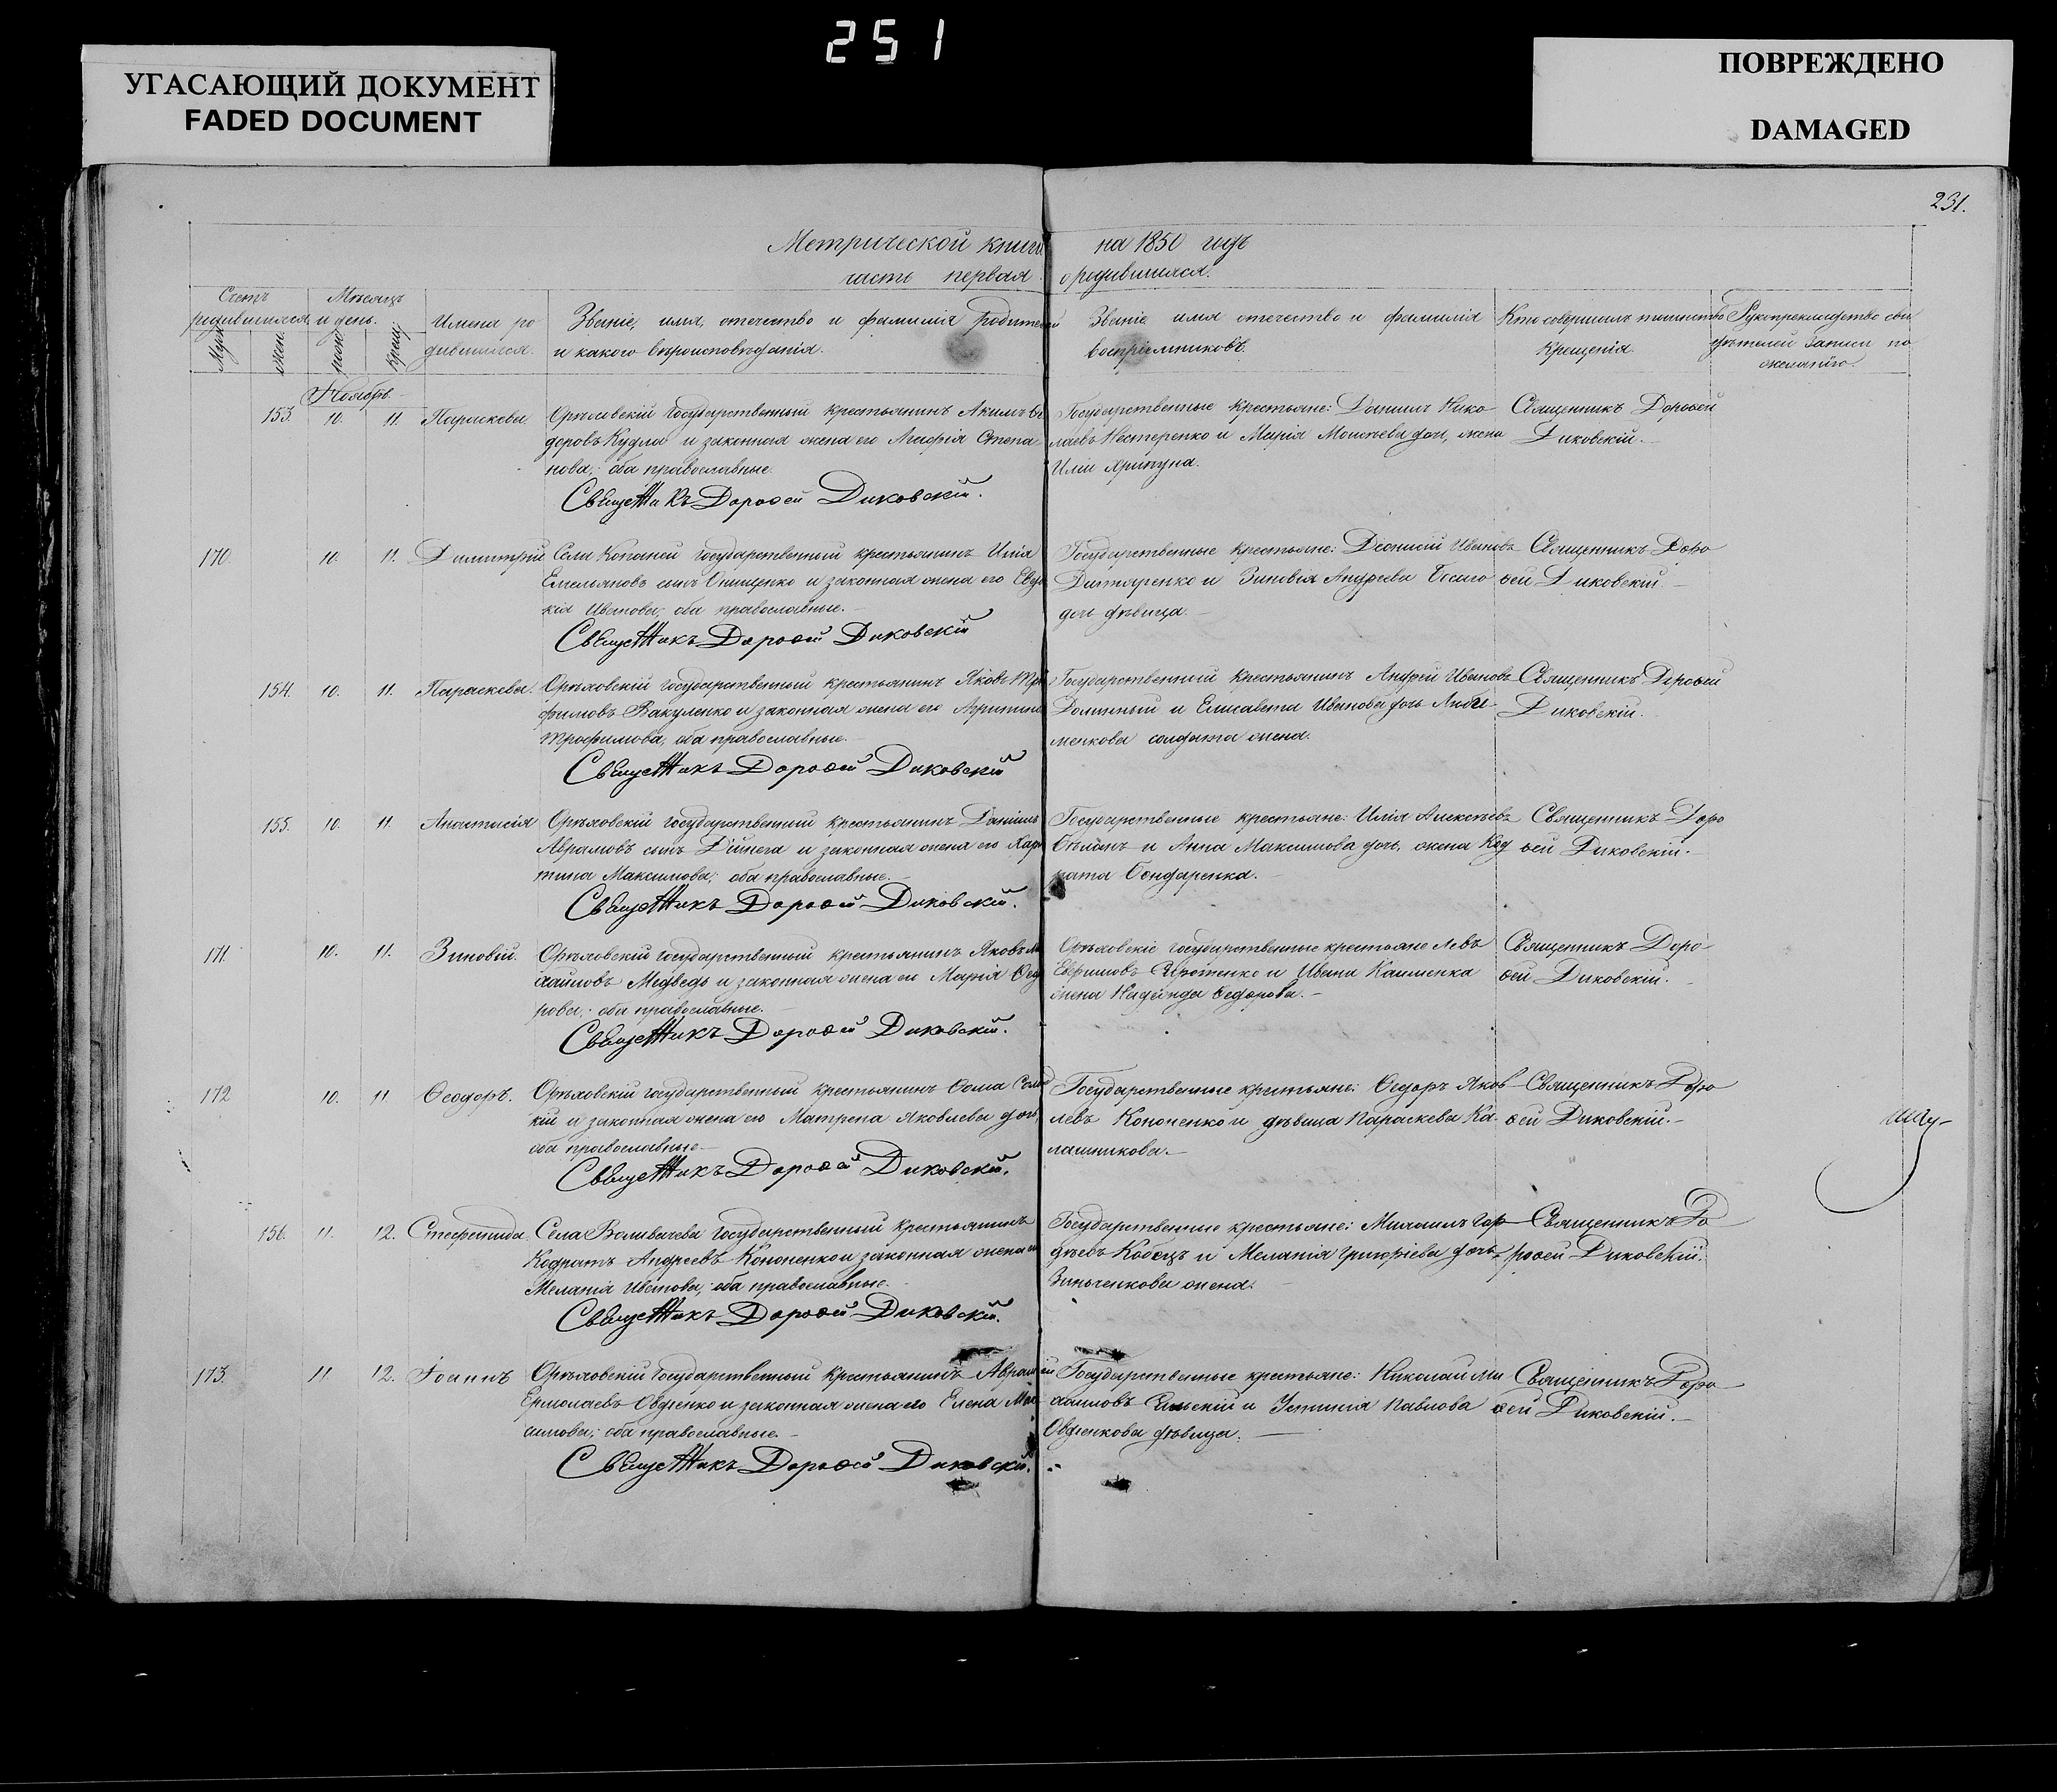 251
УГАСАЮЩИЙ ДОКУМЕНТ
FADED DOCUMENT
ПОВРЕЖДЕНО
DAMAGED
231.
Метрической книги на 1850 годъ
часть первая о родившихся.
Счетъ родившихся
Муж.
жен.
Мѣсяцъ и день.
рожд.
крещ.
Имена ро
дившихся.
Званіе, имя, отечество и фамилія родителей
и какого вѣроисповѣданія.
Званіе имя отечество и фамилія
воспріемниковъ.
Кто совершалъ таинство
Крещенія
Рукоприкладство сви
дѣтелей записи по
желанію.
Ноябрь.
153. 10. 11. Параскева. Орѣховскій государственный крестьянинъ Акимъ
доровъ Кудла и законная жена его Агафія Степа
нова; оба православные.
Священникъ Дороѳей Диковскій.
Государственные крестьяне: Даніилъ Нико
лаевъ Нестеренко и Марія Моисѣева доч, жена
Иліи Хрипуна.
Священникъ Дороѳей
Диковскій.
170. 10. 11. Димитрій Села Копаней государственный крестьянинъ Илія
Емельяновъ сынъ Онищенко и законная жена его Евдо
кія Иванова; оба православные.
Священникъ Дороѳей Диковскій
Государственные крестьяне: Діонисій Ивановъ
Дитяренко и Зиновія Андреева
доч дѣвица.
Священникъ Доро
ѳей Диковскій.
154. 10. 11. Параскева. Орѣховскій государственный крестьянинъ Яковъ Тро
фимовъ Вакуленко и законная жена его Агрипина
Трофимова, оба православные.
Священникъ Дороѳей Диковскій
Государственный крестьянинъ Андрей Ивановъ
и Елисавета Иванова дочь
менкова солдата жена.
Священникъ Дороѳей
Диковскій.
155. 10. 11. Анастасія Орѣховскій государственный крестьянинъ Даніилъ
Аврамовъ сынъ Дейнега и законная жена его Хари
тина Максимова; оба православные.
Священникъ Дороѳей Диковскій.
Государственные крестьяне: Илія Алексѣевъ
Бѣланъ и Анна Максимова доч, жена Код
рата Бондаренка.
Священникъ Доро
ѳей Диковскій.
171. 10. 11. Зиновій. Орѣховскій государственный крестьянинъ Яковъ Ми
хайловъ Медведь и законная жена его Марія Ѳедо
рова; оба православные.
Священникъ Дороѳей Диковскій.
Орѣховскіе государственные крестьяне Левъ
Ефримовъ и Ивана Клименка
жена Надежда Ѳедорова.
Священникъ Доро
ѳей Диковскій.
172 10. 11 Ѳеодоръ. Орѣховскій государственный крестьянинъ Ѳома
кій и законная жена его Матрена Яковлева доч,
оба православные
Священникъ Дороѳей Диковскій.
Государственные крестьяне: Ѳедоръ Яков
левъ Кононенко и дѣвица Параскева Ка
лашникова.
Священникъ Доро
ѳей Диковскій.
156. 11. 12. Стефанида Села Васильева государственный крестьянинъ
Кодратъ Андреевъ Кононенко и законная жена его
Меланія Иванова; оба православные.
Священникъ Дороѳей Диковскій.
Государственные крестьяне: Михаилъ Гор
дѣевъ Кобецъ и Меланія Григоріева дочь,
Зинченкова жена.
Священникъ До
роѳей Диковскій.
173. 11. 12. Іоаннъ Орѣховскій государственный крестьянинъ Аврамій
Ермолаевъ Овдіенко и законная жена его Елена Мак
симова; оба православные.
Священникъ Дороѳей Диковскій.
Государственные крестьяне: Николай Ми
хаиловъ и Устинія Павлова
Овдіенкова дѣвица.
Священникъ Доро
ѳей Диковскій.